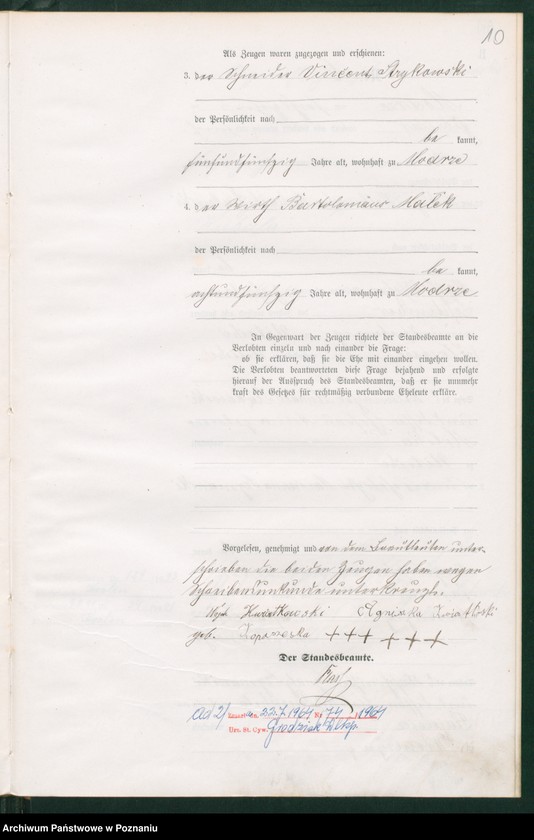 10
Als Zeugen waren zugezogen und erschienen:
3. der Schneider Vincent Strykowski
der Persönlichkeit nach
be kannt,
fünfundfünfzig Jahre alt, wohnhaft zu Modrze
4. der Wirth Bartolomäus Malek
der Persönlichkeit nach
be kannt,
achtundfünfzig Jahre alt, wohnhaft zu Modrze
In Gegenwart der Zeugen richtete der Standesbeamte an die
Verlobten einzeln und nach einander die Frage:
ob sie erklären, daß sie die Ehe mit einander eingehen wollen.
Die Verlobten beantworteten diese Frage bejahend und erfolgte
hierauf der Ausspruch des Standesbeamten, daß er sie nunmehr
kraft des Gesetzes für rechtmäßig verbundene Eheleute erkläre.
Vorgelesen, genehmigt und von den Brautleuten unter-
schrieben die beiden Zeugen haben wegen
Schreibensunkunde unterkreuzt.
Kwiatkowski Agnieszka
geb. +++ +++
Der Standesbeamte.
ad 2/ Zmarł dn. 22.7.1964 Nr 74 1964
Urz. St. Cyw. Grodzisk Wlkp.
Archiwum Państwowe w Poznaniu